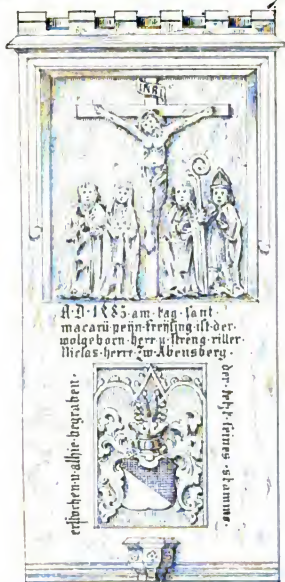 INRI
A·D·1485·am·tag·sant·
macarii·penn·freysing·ist·der·
wolgeborn·herr·u·streng·ritter·
Niclas·herre·zw·Abensberg·
erstochen·u·alhie·begraben·
der·letzt·seines·stamms·